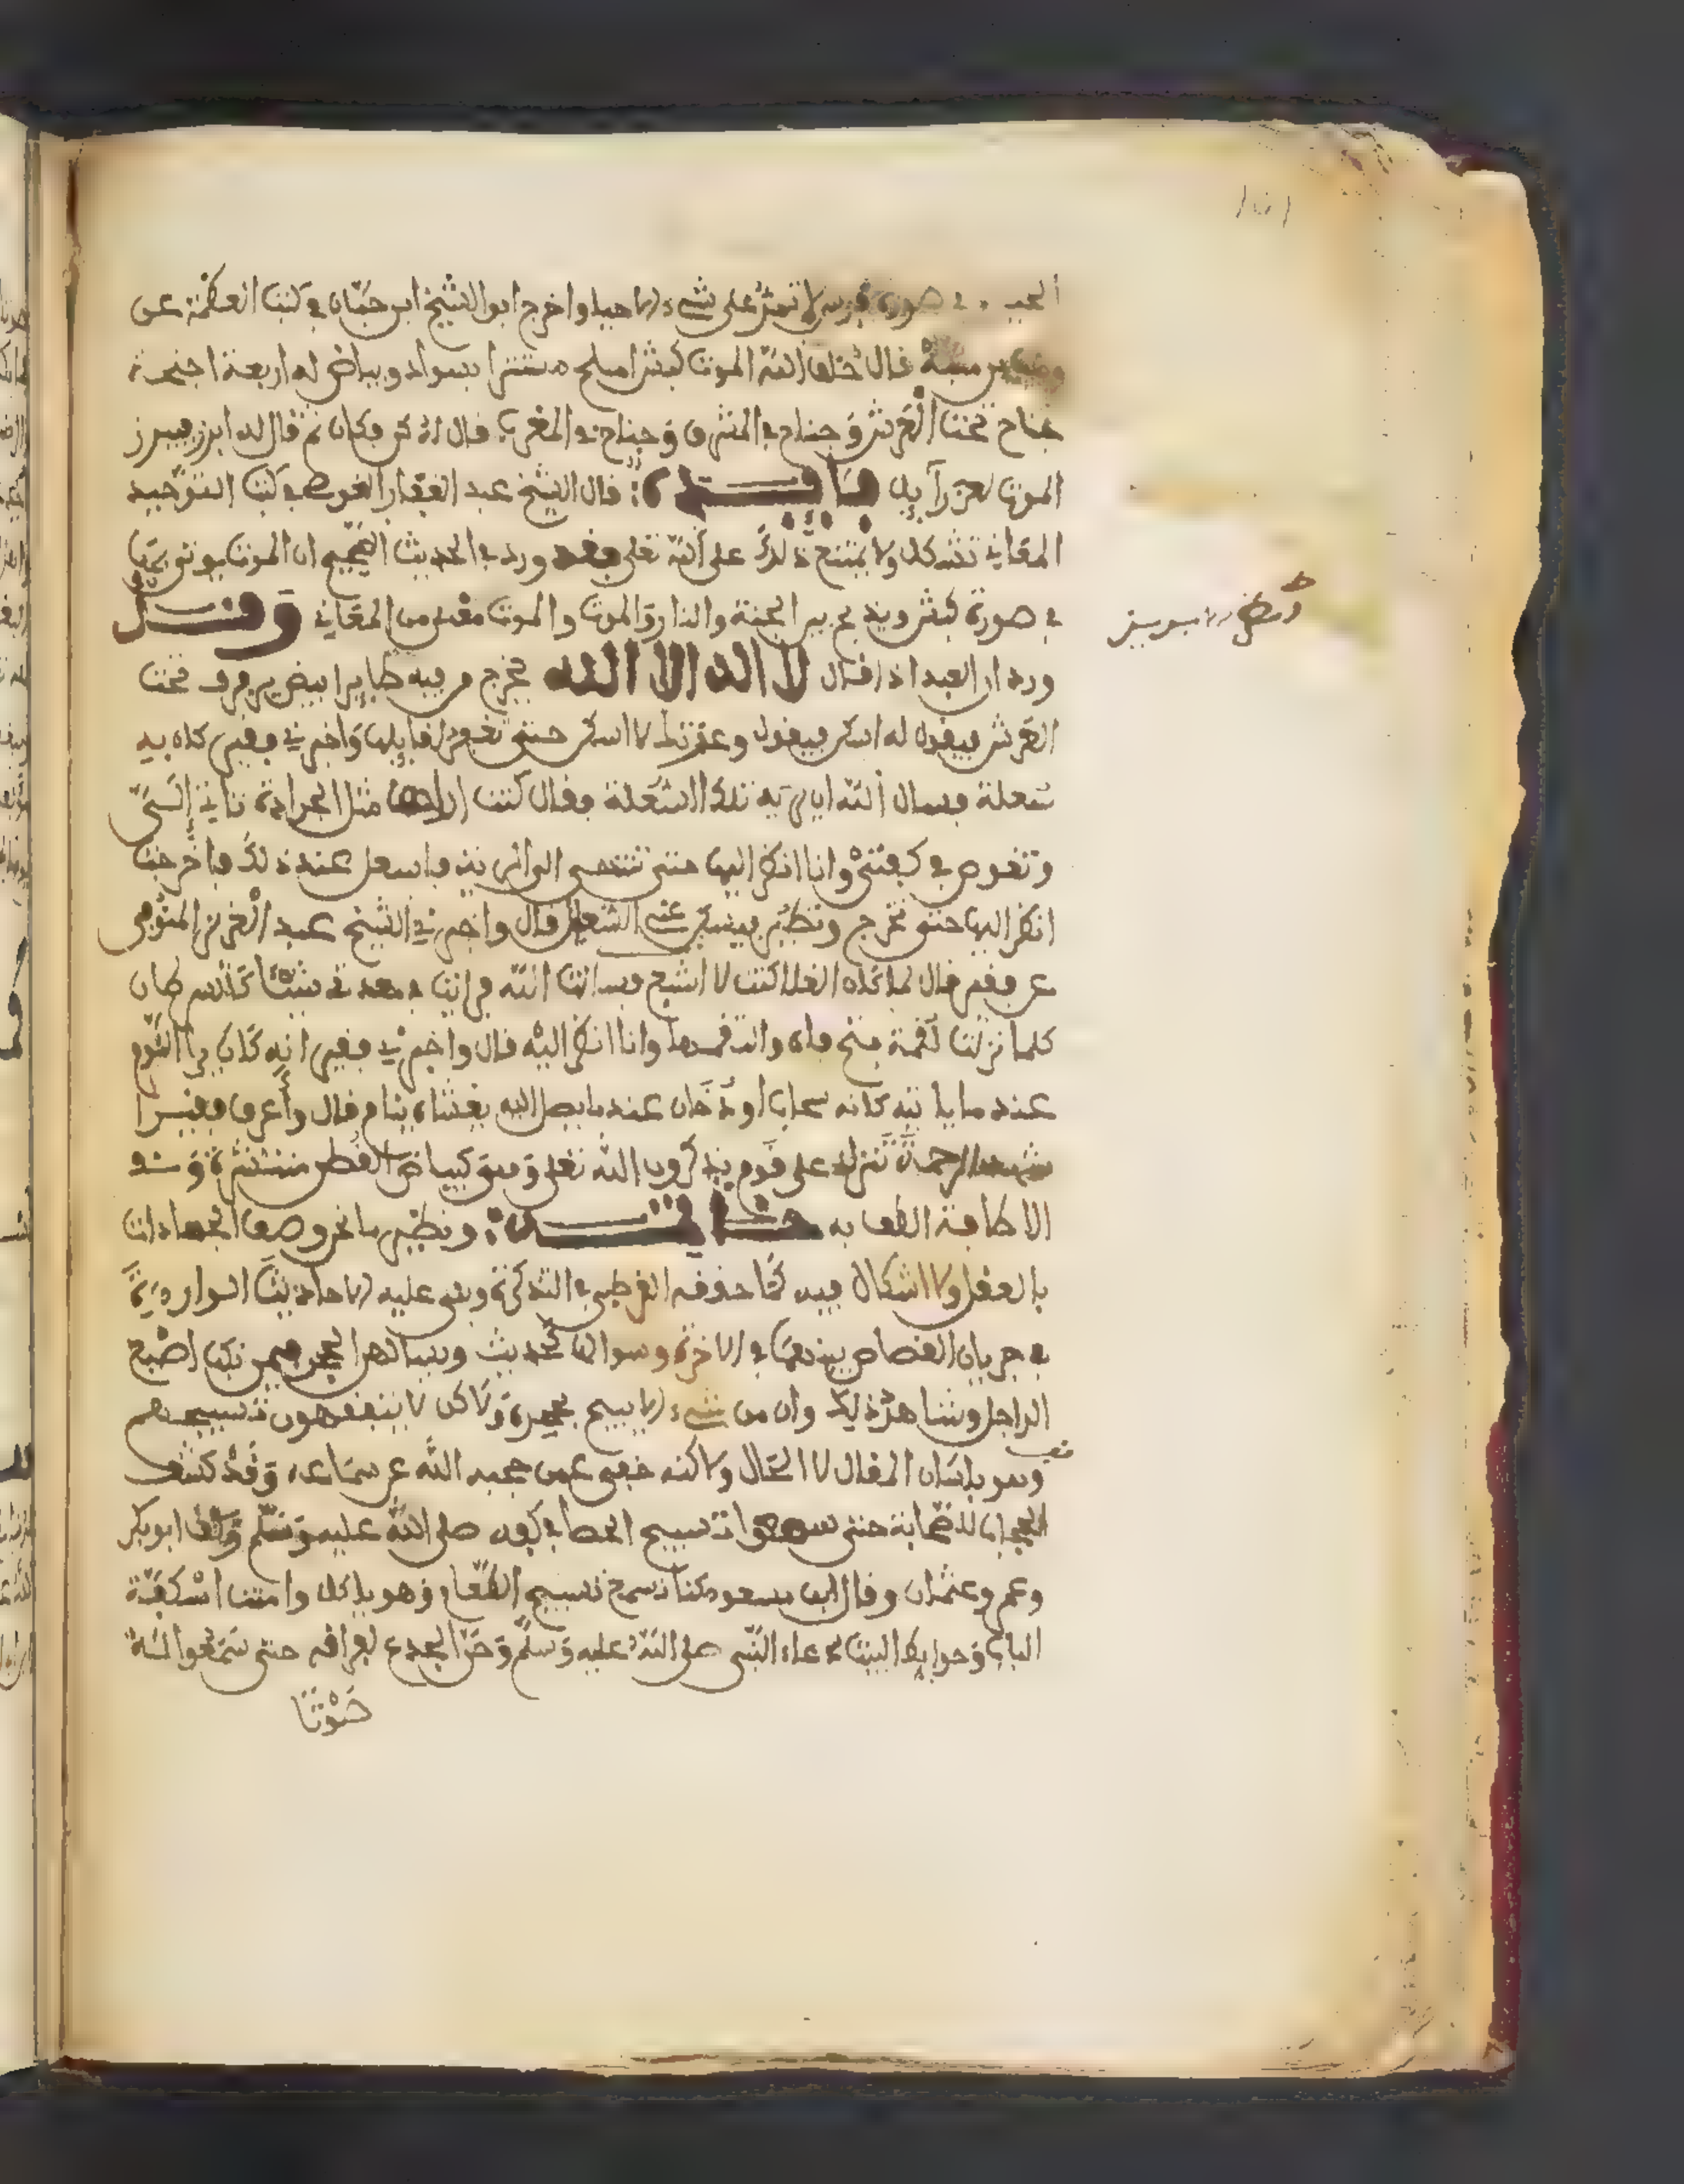 في صورة فرس لا تمر على شيء الا حيا واخرج ابو الشيخ ابن حبان في كتب العظمة عن
وهب بن منبه قال خلق الله الموت كبشا املح مستترا بسواد وبياض له اربعة اجنحة
جناح تحت العرش وجناح في المشرق وجناح في المغرب قال له كن فكان ثم قال له ابرز فبرز
الموت لعزرآييل فايدة قال الشيخ عبد الغفار القوصي في كتب التوحيد
المعاني تتشكل ولا يمتنع ذلك على الله تعلى فقد ورد في الحديث الصحيح ان الموت يوتى به
في صورة كبش ويذبح بين الجنة والنار والموت معنى من المعاني وقد
ورد ان العبد اذا قال لا اله الا الله يخرج من فيه طايرا ابيض يرفرف تحت
العرش فيقول له اسكن فيقول وعزتك لا اسكن حتى تغفر لقايلها واخبرني فقير كان به
سعلة فسال الله ان يريه تلك السعلة فقال كنت اراها مثل الجرادة تاتي الي
وتغوص في كتفي وانا انظر اليها حتى تنتهي الى فاسعل عند ذلك فاخرجت
انظر اليها حتى تخرج وتطير فيسكن عني السعال قال واخبرني الشيخ عبد العزيز المنوفي
عن فقير قال لما كان الغلا كنت لا اشبع فسالت الله فرايت في معدتي شيئا كالسرطان
كلما نزلت لقمة فتح فاه والتقمها وانا انظر اليه قال واخبرني فقير انه كان يرا النوم
عند ما ياتيه كانه سحاب او دخان عندما يصل اليه يغشاه ينام قال وأعرف فقيرا
شهد الرحمة تنزل على قوم يذكرون الله تعلى وهي كبياض القطن منتشرة
الاطافة الطف به خاتمة ونظير ما نحن وصف الجمادات
بالعقل ولا اشكال فيه كما حققه القرطبي في التذكرة وبنى عليه الاحاديث الواردة
في جريان القصاص بينهما في الاخرة وسوال الحديث وسيالهن الحجر فيمن نكب اصبع
الراجل وشاهد ذلك وان من شيء الا يسبح بحمده ولاكن لا يتفقهون تسبيحهم
وهو بلسان المقال لا الحال ولاكنه خفي عمن حجبه الله عن سماعه وقد كشف
الحجاب للصحابة حتى سمعوا تسبيح الحصا في كفه صلى الله عليه وسلم وكف ابو بكر
وعمر وعثمان وقال ابن مسعود كنا نسمع تسبيح الطعام وهو ياكل وامنت اسكفة
الباب وحوايط البيت لدعاء النبي صلى الله عليه وسلم وحن الجدع لفراقه حتى سمعوا له
صوتا